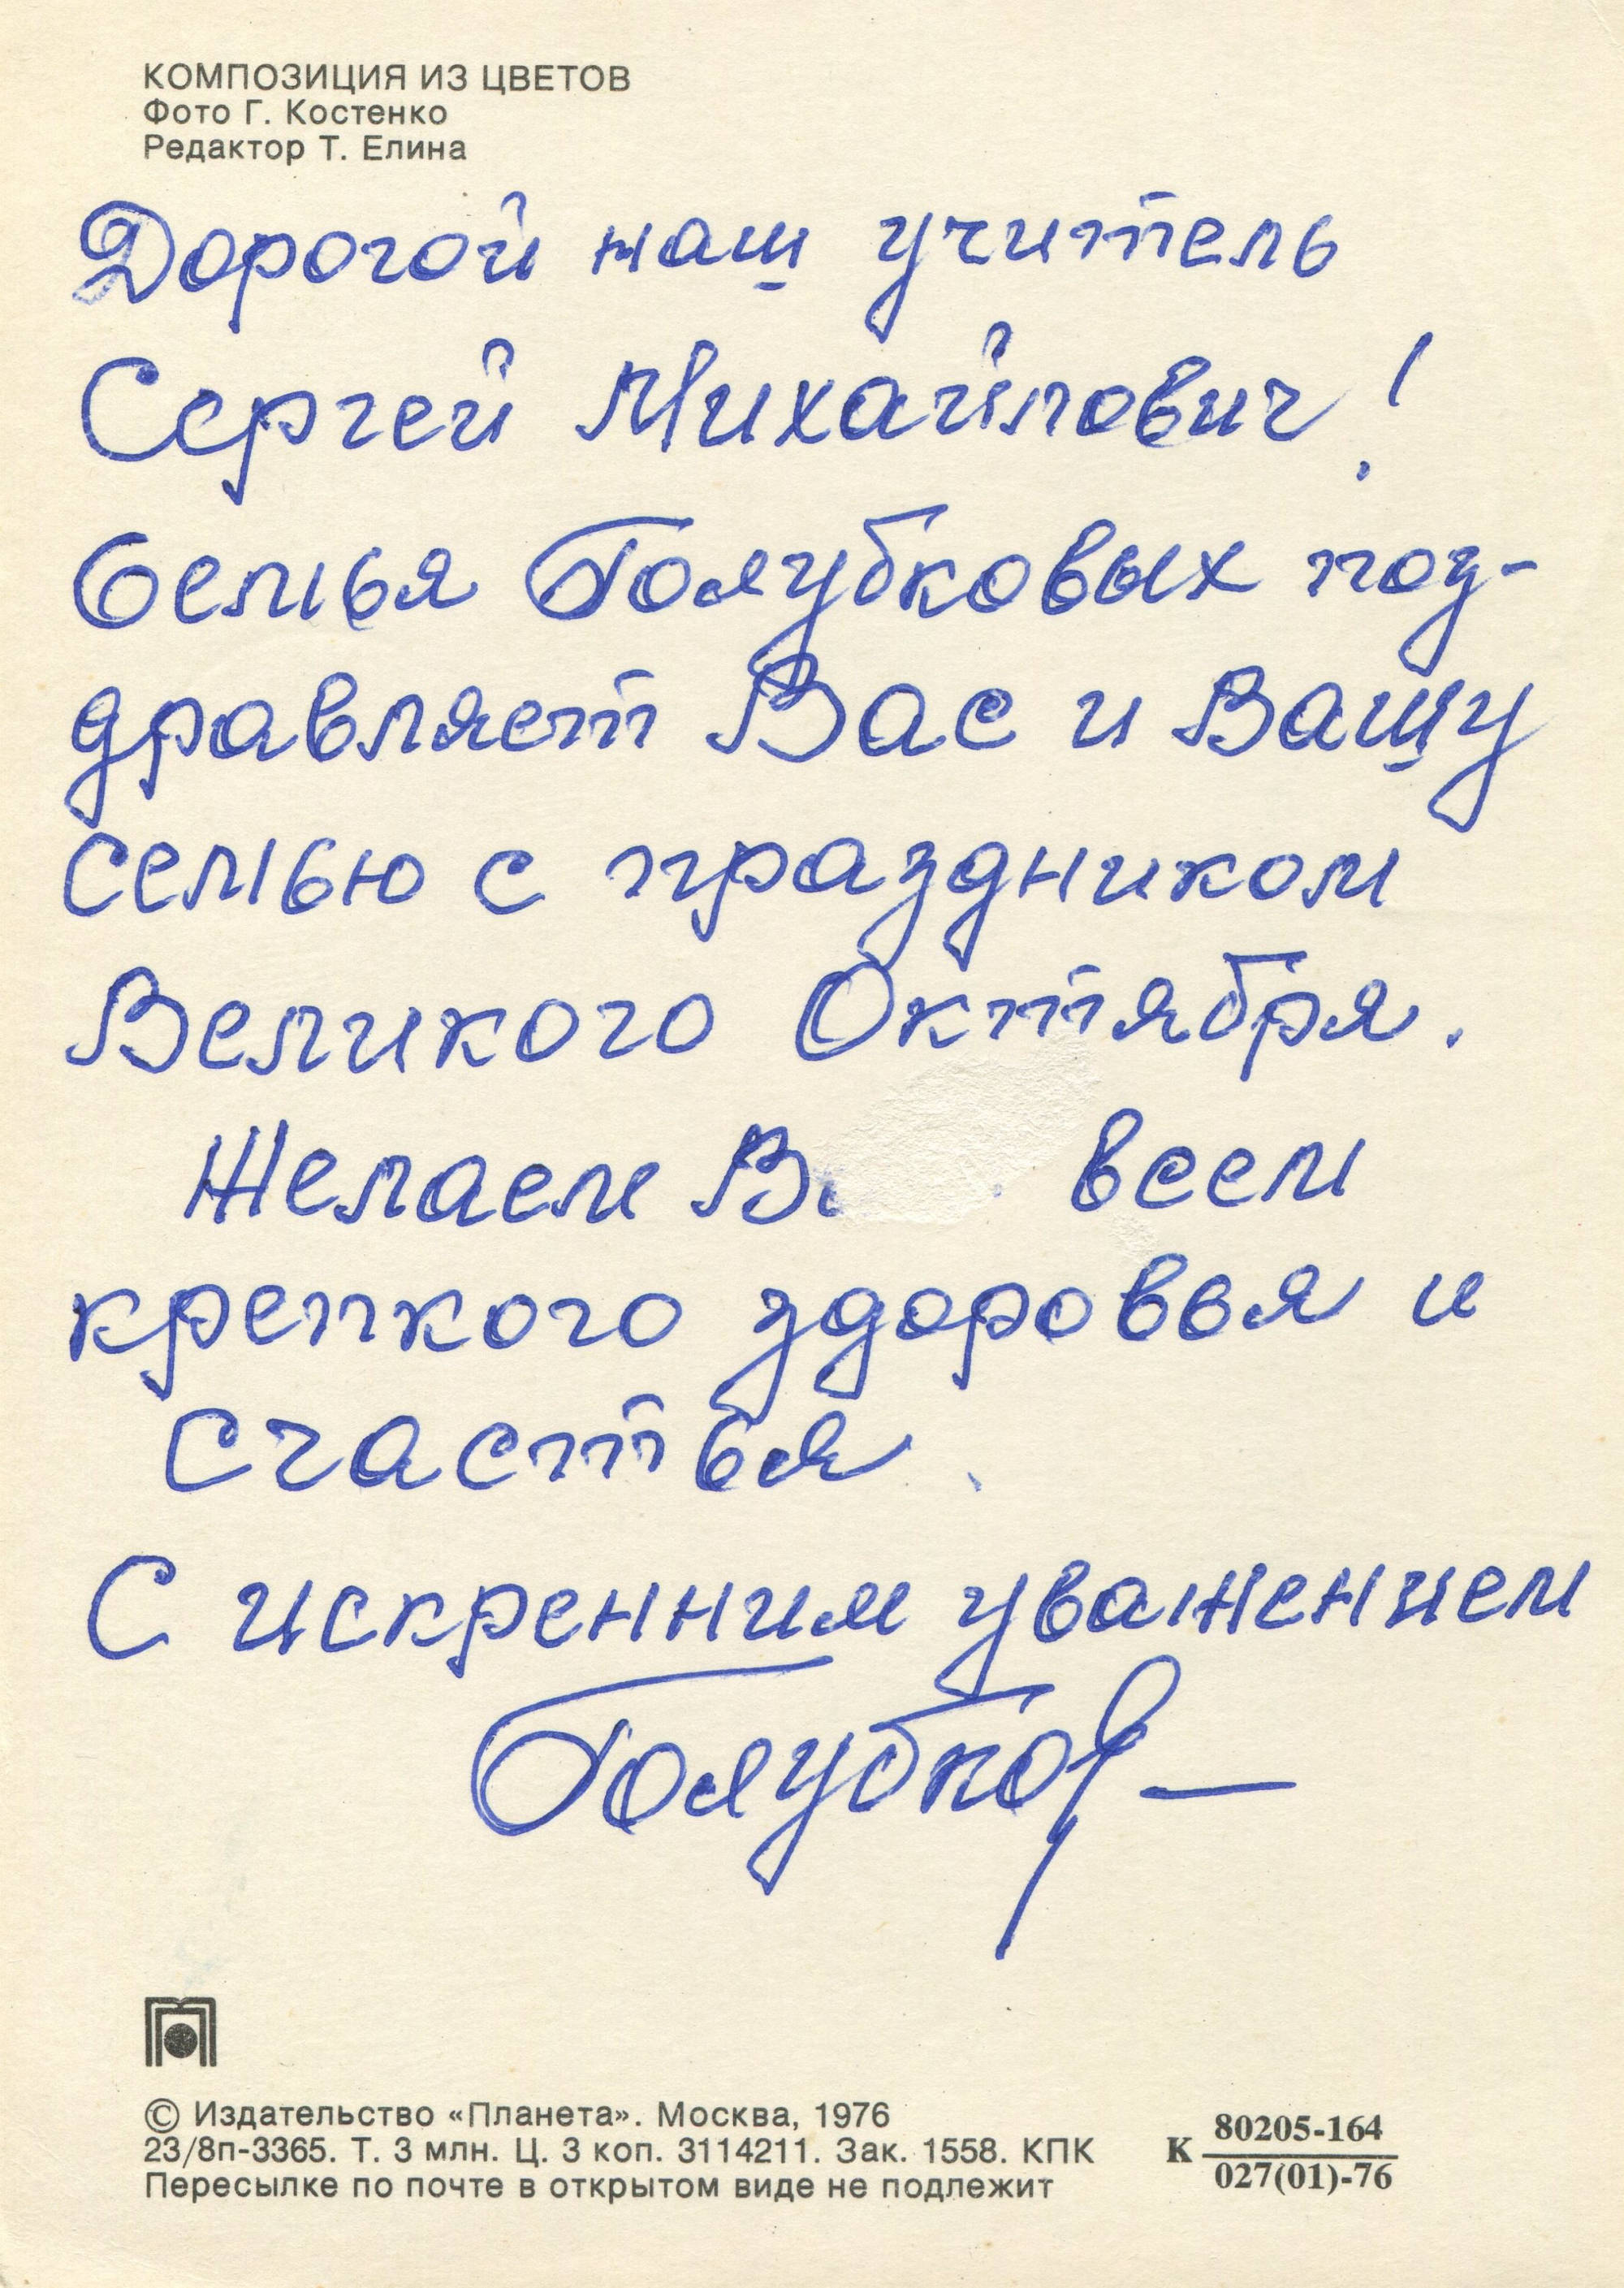 КОМПОЗИЦИЯ ИЗ ЦВЕТОВ
Фото Г. Костенко
Редактор Т. Елина
Дорогой наш учитель
Сергей Михайлович!
Семья Голубковых поз-
дравляет Вас и Вашу
семью с праздником
Великого Октября.
Желаем всем
крепкого здоровья и
счастья.
С искренним уважением
Голубков
© Издательство «Планета». Москва, 1976
23/8п-3365. Т. 3 млн. Ц. 3 коп. 3114211. Зак. 1558. КПК
Пересылке по почте в открытом виде не подлежит
К 80205-164
027(01)-76